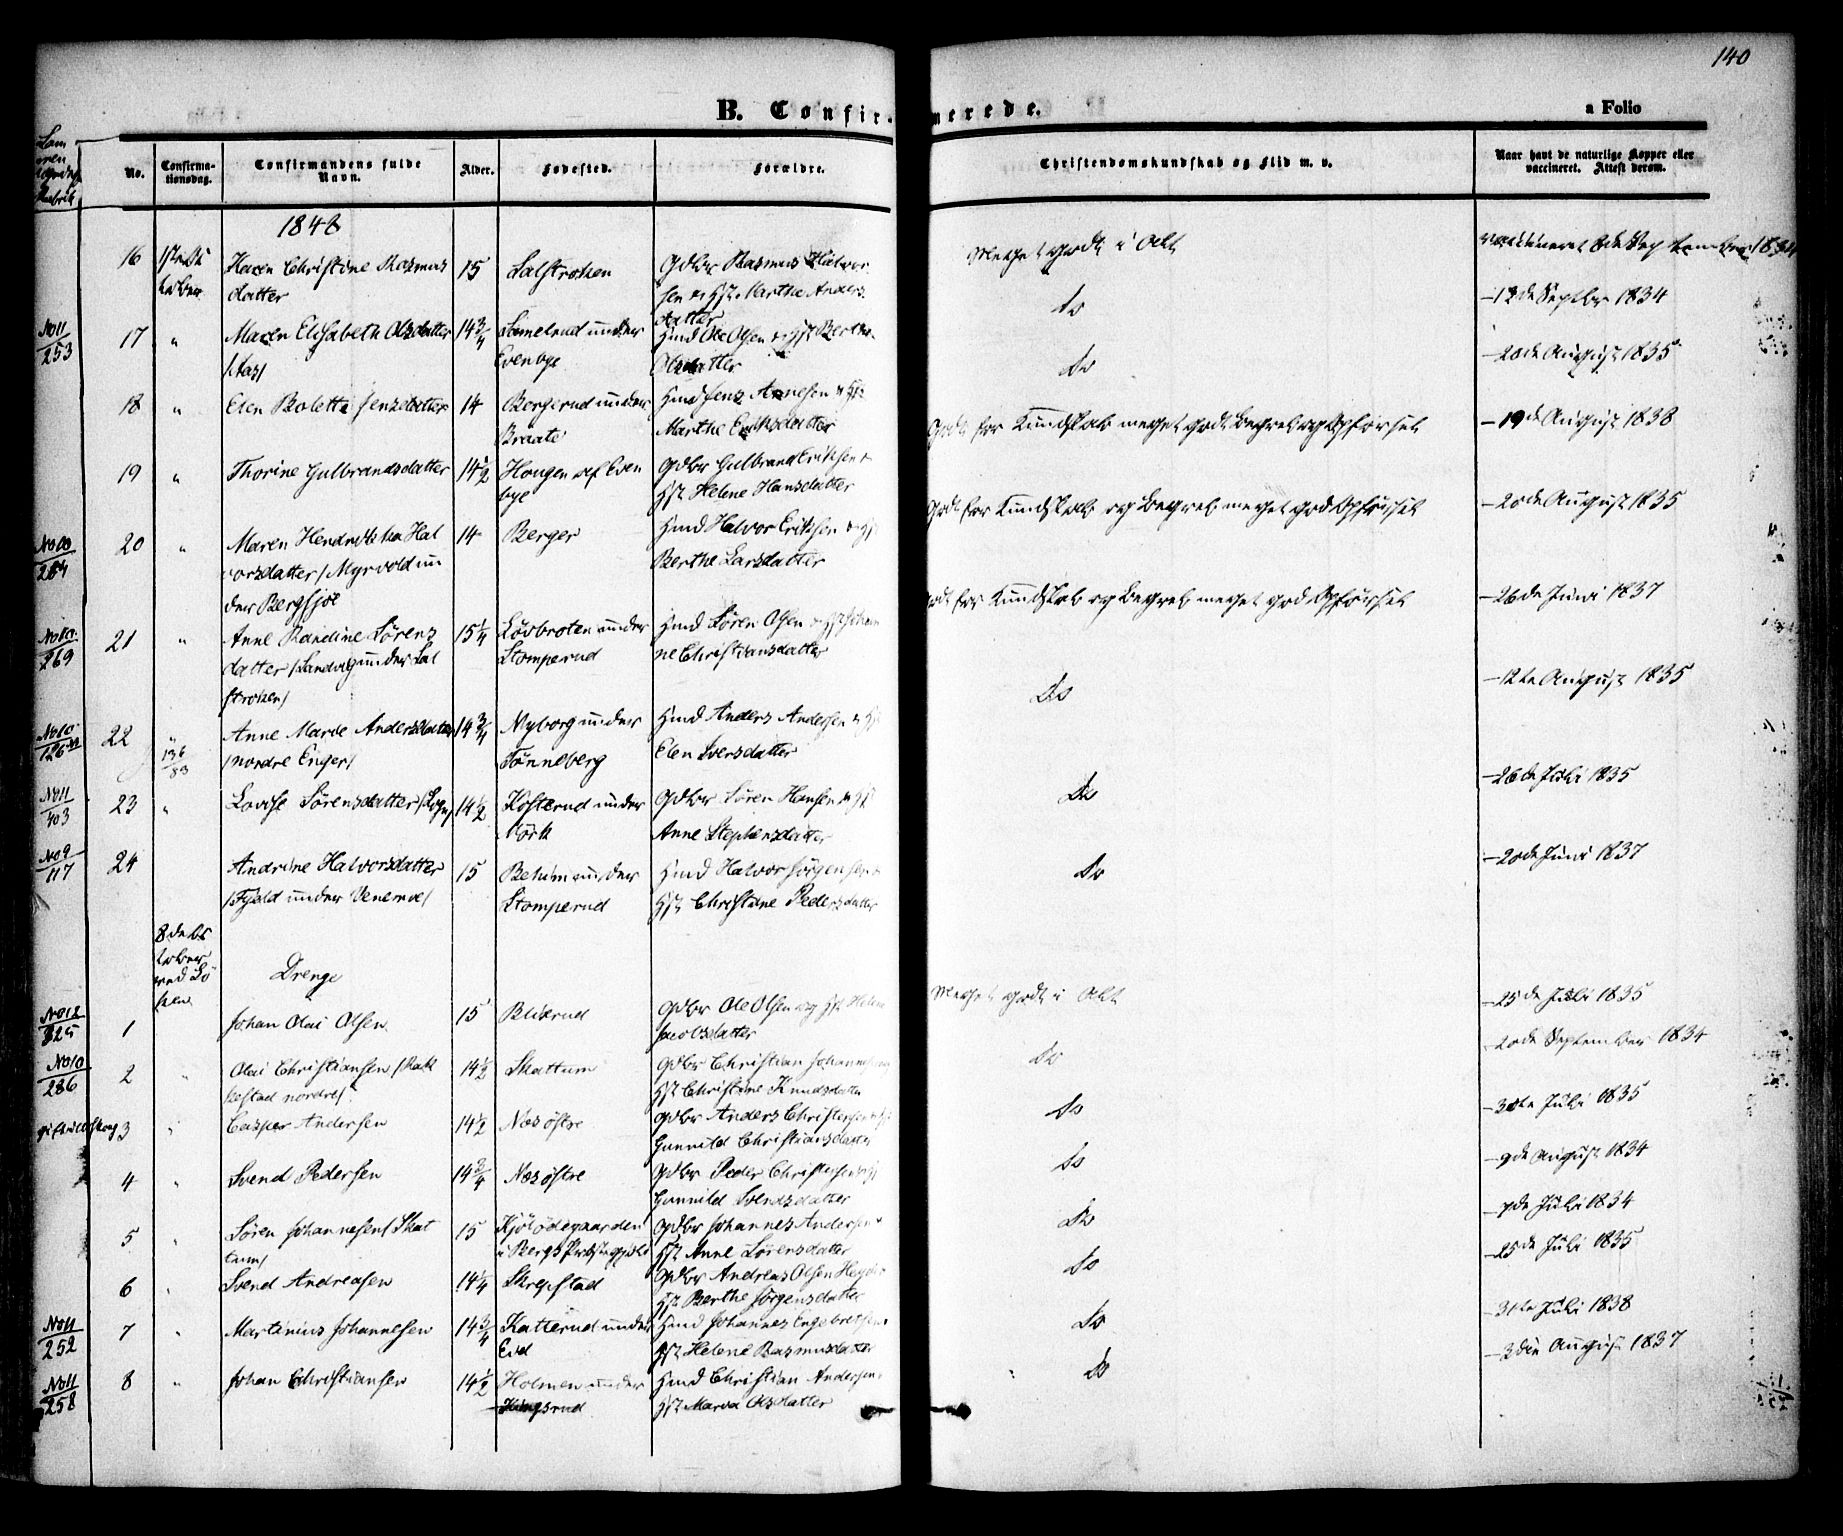 140
B. Confirmerede.
a Folio
No. Confirmationsdag. Confirmandens fulde Navn. Alder. Fødested. Forældre. Christendomskundskab og Flid m. v. Naar havt de naturlige Kopper eller vaccineret. Attest derom.
1848
16 1ste October Karen Christine Rasmusdatter 15 Salstroken Gdbr Rasmus Halvorsen & Hst. Marthe Andersdatter Meget godt i Alt vaccineret 8de September 1834
No 11/253 17 " Maren Elisabeth Olsdatter /Aas/ 14 3/4 under Evenbye Huusmd Ole Olsen & Hst Berthe Olsdatter do -12de Septbr 1834
18 " Elen Bolette Jensdatter 14 Bergerud under Braate Huusmd Jens Arnesen & Hst. Marthe Eriksdatter Do -20de August 1835
19 " Thorine Gulbrandsdatter 14 1/2 Hougen af Evenbye Gdbr Gulbrand Eriksen & Hst Helene Hansdatter Godt for Kundskab meget godt Begreb og Opførsel -19de August 1838
20 " Maren Hendrikka Halvorsdatter /Myrvold under Bergsjøe 14 Berger Huusmd Halvor Eriksen & Hst Berthe Larsdatter Godt for Kundskab og Begreb meget god Opførsel -20de August 1835
/269 21 " Anne Randine Sørensdatter /Sandvig under Salstroken/ 15 1/4 Løvbroten under Stomperud Huusmd Søren Olsen & Hst Johanne Christiansdatter Godt for Kundskab og Begreb meget god Opførsel -26de Juni 1837
No 10 22 " 136/83 Anne Marie Andersdatter /nordre Enger/ 14 3/4 Nyborg under Tønneberg Huusmd Anders Andersen & Hst Elen Iversdatter Do -12te August 1835
No 11/403 23 " Lovise Sørensdatter 14 1/2 Kosterud under Gdbr Søren Hansen & Hst Anne Stephensdatter Do -26de Juli 1835
No 9/117 24 Andrine Halvorsdatter /Fjeld under 15 under Stomperud Huusmd Halvor Jørgensen & Hst. Christine Pedersdatter Do -20de Juni 1837
8de October ved
Drenge
No 12/325 1 Johan Olai Olsen 15 Blixrud Gdbr Ole Olsen og Hst Helene Jacobsdatter Meget godt i Alt -25de Juli 1835
No 10/286 2 " Olai Christiansen nordre/ 14 1/2 Skattum Gdbr Christian Johannesen Hst Christine Knudsdatter Do -20de September 1834
3 " Casper Andersen 14 1/2 Næs østre Gdbr Anders Christensen & Hst Gunnild Christiansdatter Do -30te Juli 1835
4 " Svend Pedersen 14 3/4 Næs østre Gdbr Peder Christensen & Hst Gunnild Svendsdatter Do -9de August 1834
5 " Søren Johannesen /Skattum/ 15 Kjøl ødegaarden i Bergs Præstegjeld Gdbr Johannes Andersen & Hst Anne Sørensdatter Do -7de Juli 1834
6 " Svend Andreasen 14 1/4 Skrepstad Gdbr Andreas Olsen Hst Berthe Jørgensdatter Do -25de Juli 1835
No 11/252 7 " Martinius Johannesen 14 3/4 Katterud under Eid Huusmd Johannes Engebretsen & Hst Helene Rasmusdatter Do -31te Juli 1838
No 11/258 8 " Johan Christiansen 14 1/2 Holmen under Kingsrud Huusmd Christian Andersen Hst. Maren Olsdatter Do -3die August 1837